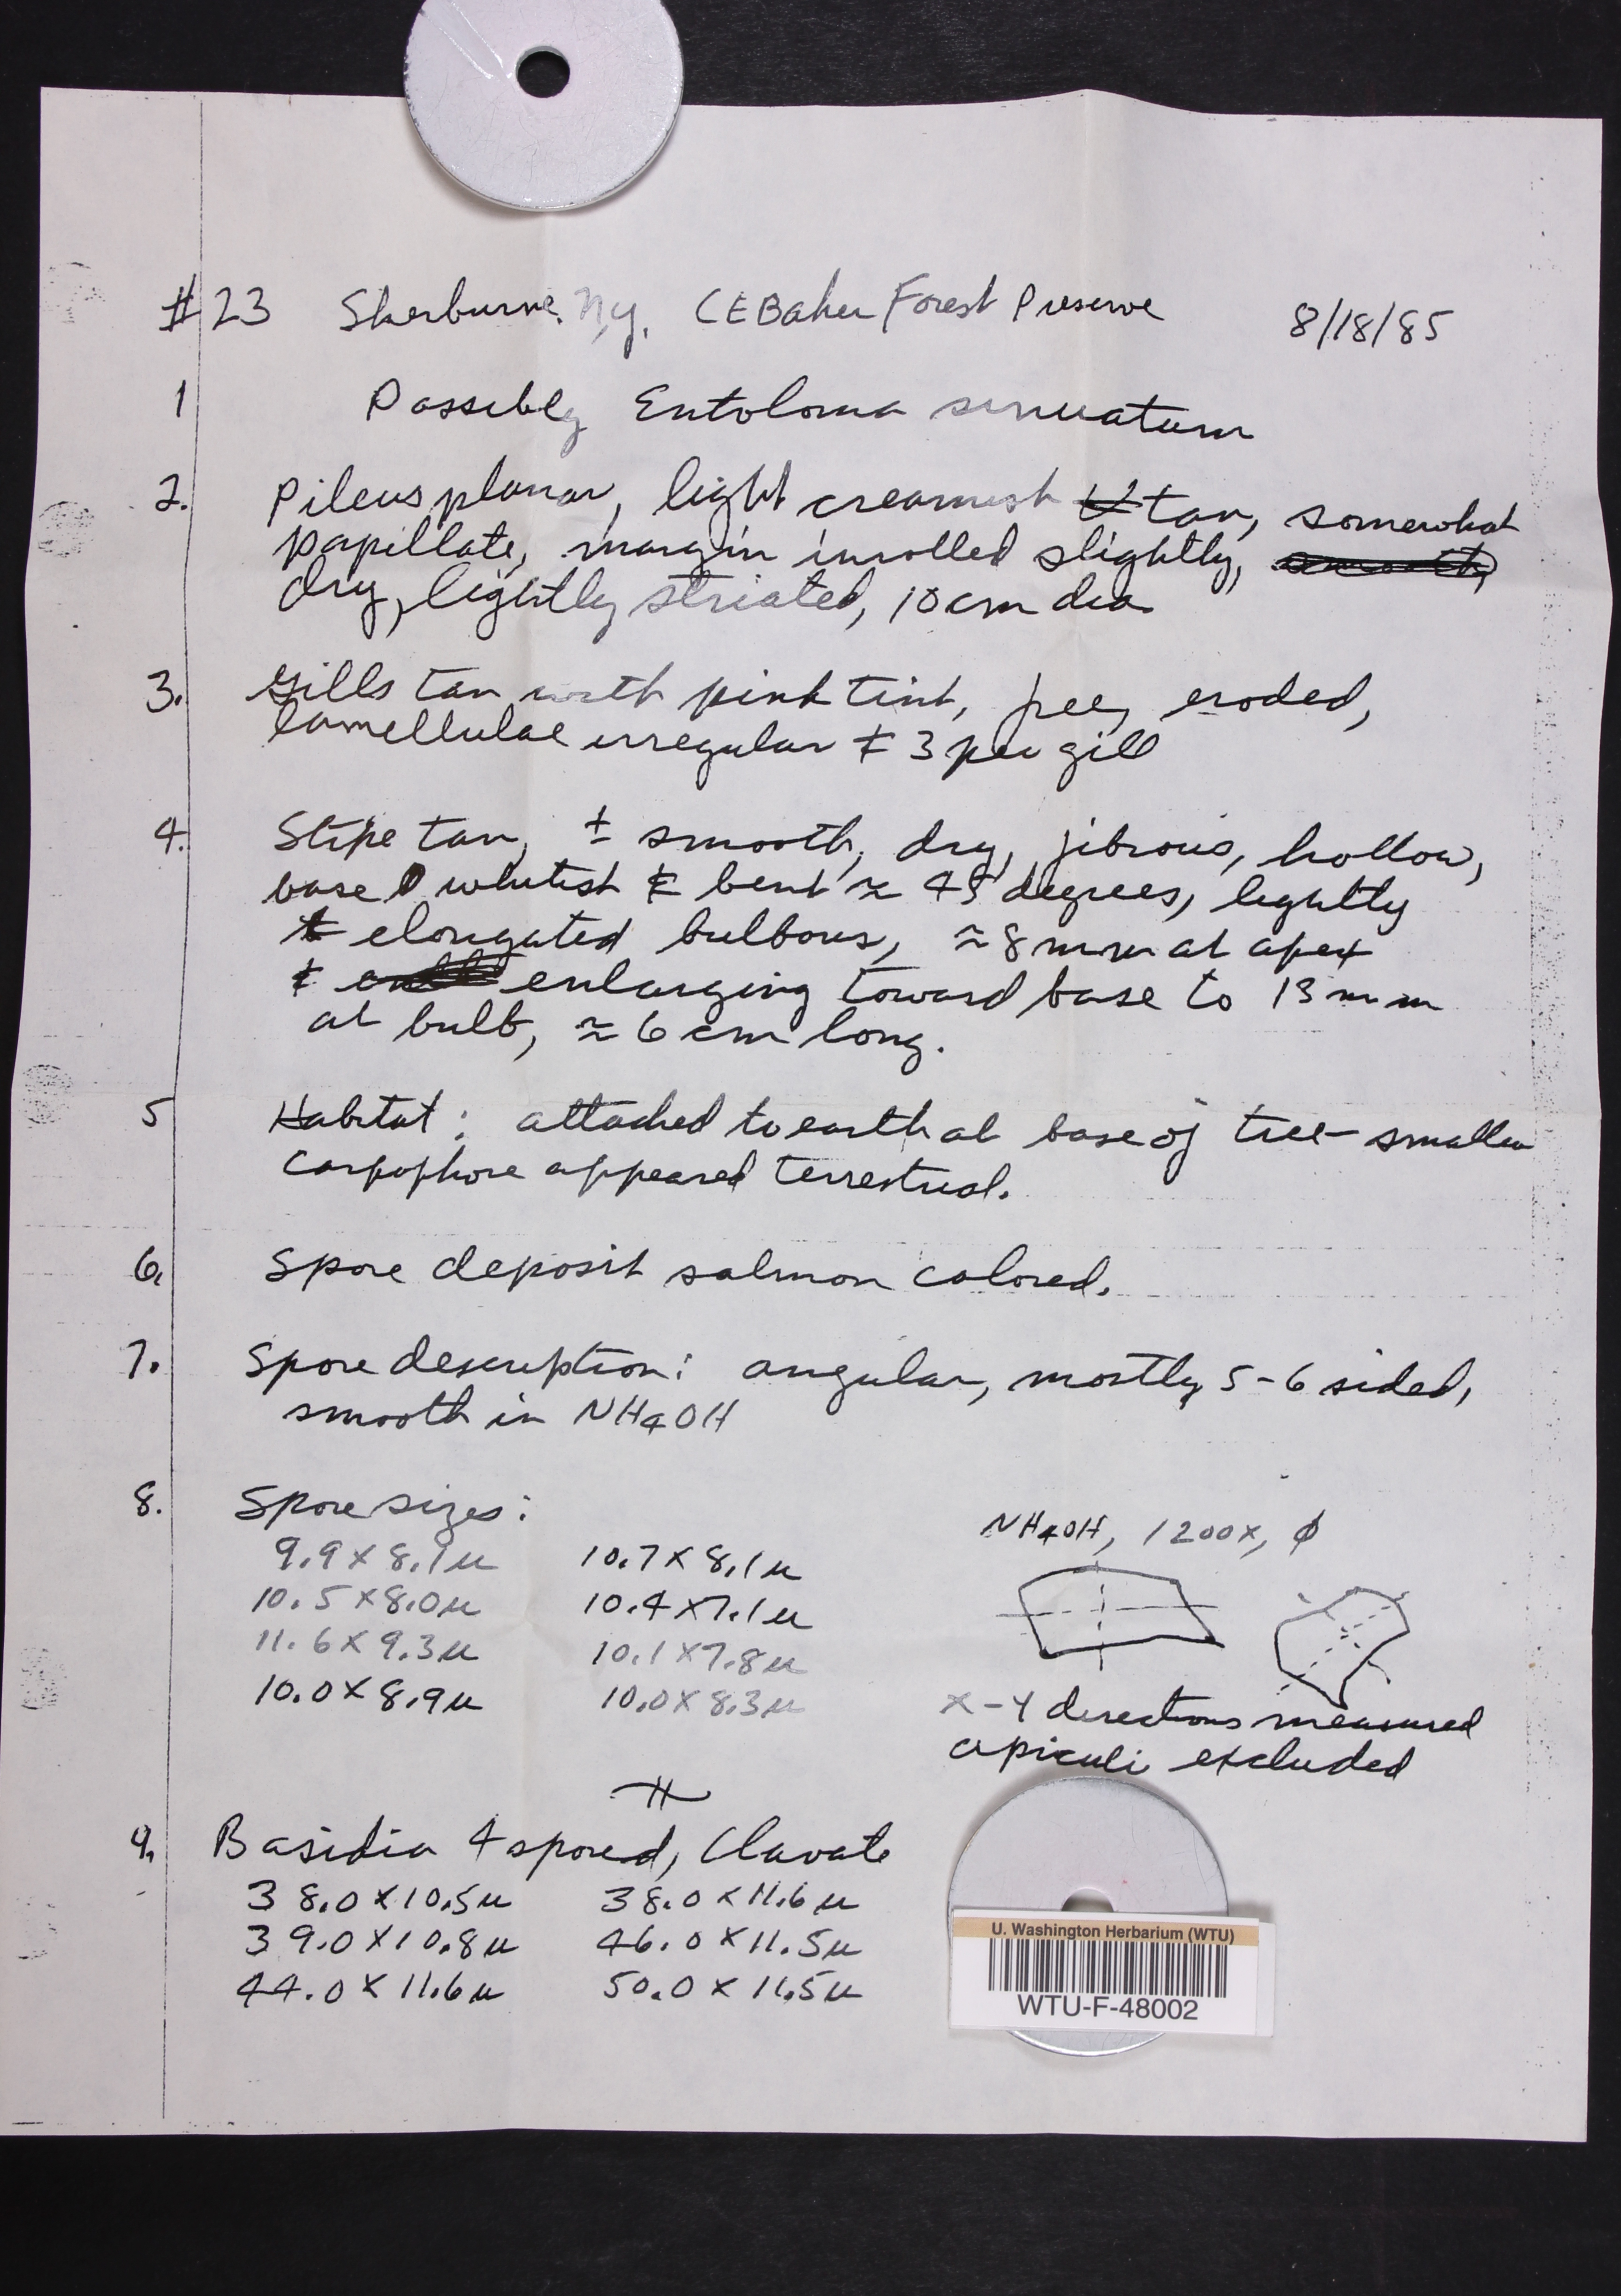 #23 Sherburne, N.Y. CE Baker Forest Preserve 8/18/85
1 Possibly Entoloma sinuatum
2. Pileus planar, light creamish tan, somewhat
papillate, margin inrolled slightly,
dry, lightly striated, 10 cm dia.
3. Gills tan with pink tint, free, eroded,
lamellulae irregular & 3 per gill
4. Stipe tan, ± smooth, dry, fibrous, hollow,
base whitish & bent ≈ 45 degrees, lightly
elongated bulbous, ≈ 8 mm at apex
& enlarging toward base to 13 mm
at bulb, ≈ 6 cm long.
5 Habitat: attached to earth at base of tree - smaller
carpophore appeared terrestrial.
6. Spore deposit salmon colored.
7. Spore description: angular, mostly 5-6 sided,
smooth in NH4OH
8. Spore sizes:
NH4OH, 1200x, ϕ
9.9 x 8.1 µ 10.7 x 8.1 µ
10.5 x 8.0 µ 10.4 x 7.1 µ
11.6 x 9.3 µ 10.1 x 7.8 µ
10.0 x 8.9 µ 10.0 x 8.3 µ
x-y directions measured
apiculi excluded
9. Basidia 4 spored, Clavate
38.0 x 10.5 µ 38.0 x 11.6 µ
39.0 x 10.8 µ 46.0 x 11.5 µ
44.0 x 11.6 µ 50.0 x 11.5 µ
U. Washington Herbarium (WTU)
WTU-F-48002